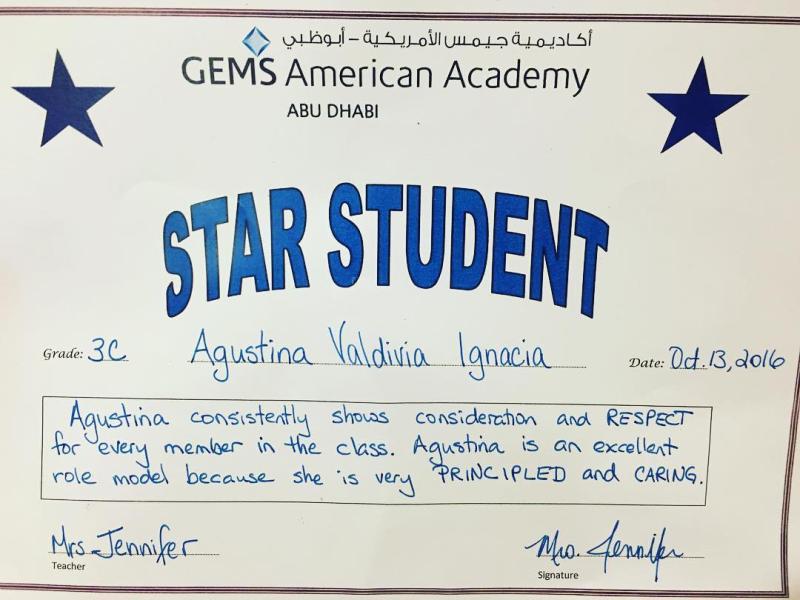 أكاديمية جيمس الأمريكية – أبوظبي
GEMS American Academy
ABU DHABI
STAR STUDENT
Grade: 3C Agustina Valdivia Ignacia Date: Oct. 13, 2016
Agustina consistently shows consideration and RESPECT
for every member in the class. Agustina is an excellent
role model because she is very PRINCIPLED and CARING.
Mrs. Jennifer Mrs. Jennifer
Teacher Signature